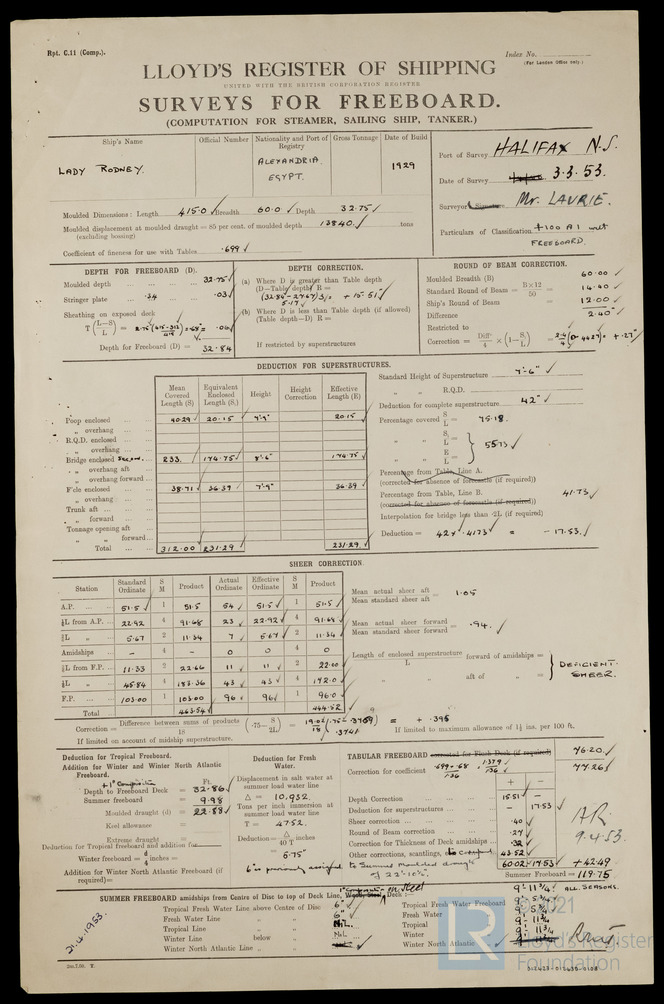 Rpt. C.11 (Comp.).
Index No.
(For London Office only.)
LLOYD'S REGISTER OF SHIPPING
UNITED WITH THE BRITISH CORPORATION REGISTER
SURVEYS FOR FREEBOARD.
(COMPUTATION FOR STEAMER, SAILING SHIP, TANKER.)
Ship's Name
Official Number
Nationality and Port of Registry
Gross Tonnage
Date of Build
LADY RODNEY.
ALEXANDRIA
EGYPT.
1929
Port of Survey HALIFAX N.S.
Date of Survey 3.3.53.
Surveyor's Mr. LAURIE.
Particulars of Classification +100 A1 with
FREEBOARD.
Moulded Dimensions: Length 415.0 Breadth 60.0 Depth 32.75
Moulded displacement at moulded draught = 85 per cent. of moulded depth 13840. tons
(excluding bossing)
Coefficient of fineness for use with Tables .699
DEPTH FOR FREEBOARD (D).
Moulded depth 32.75
Stringer plate .34 .03
Sheathing on exposed deck
T (L-S/L) =
Depth for Freeboard (D) = 32.84
DEPTH CORRECTION.
(a) Where D is greater than Table depth
(D-Table depth) R =
(32.84-27.67) 3 = + 15.51
5.17
(b) Where D is less than Table depth (if allowed)
(Table depth-D) R =
If restricted by superstructures
ROUND OF BEAM CORRECTION.
Moulded Breadth (B) 60.00
Standard Round of Beam = B×12/50 = 14.40
Ship's Round of Beam = 12.00
Difference 2.40
Restricted to
Correction = Diff/4 × (1-S₁/L) = +.27
DEDUCTION FOR SUPERSTRUCTURES.
Mean Covered Length (S)
Equivalent Enclosed Length (S₁)
Height
Height Correction
Effective Length (E)
Poop enclosed 40.29 20.15 7'9" 20.15
„ overhang
R.Q.D. enclosed
„ overhang
Bridge enclosed 233. 174.75 8'6" 174.75
„ overhang aft
„ overhang forward
F'cle enclosed 38.71 36.39 7'9" 36.39
„ overhang
Trunk aft
„ forward
Tonnage opening aft
„ „ forward
Total 312.00 231.29 231.29
Standard Height of Superstructure 7'-6"
„ „ R.Q.D.
Deduction for complete superstructure 42"
Percentage covered S/L = 75.18.
„ „ S₁/L =
„ „ E/L = } 55.73
Percentage from Table, Line A.
(corrected for absence of forecastle (if required))
Percentage from Table, Line B. 41.73
(corrected for absence of forecastle (if required))
Interpolation for bridge less than .2L (if required)
Deduction = 42 × .4173 = - 17.53.
SHEER CORRECTION.
Station
Standard Ordinate
S M
Product
Actual Ordinate
Effective Ordinate
S M
Product
A.P. 51.5 1 51.5 54 51.5 1 51.5
⅙L from A.P. 22.92 4 91.68 23 22.92 4 91.68
⅓L „ 5.67 2 11.34 7 5.67 2 11.34
Amidships - 4 - 0 0 4 0
⅓L from F.P. 11.33 2 22.66 11 11 2 22.00
⅙L „ 45.84 4 183.36 43 43 4 172.0
F.P. 103.00 1 103.00 96 96 1 96.0
Total 463.54 444.52
Mean actual sheer aft
Mean standard sheer aft = 1.05
Mean actual sheer forward
Mean standard sheer forward = .94.
Length of enclosed superstructure forward of amidships =
L aft of „ =
DEFICIENT SHEER.
Correction = Difference between sums of products / 18 (.75-S/2L) = = + .395
If limited on account of midship superstructure.
If limited to maximum allowance of 1½ ins. per 100 ft.
Deduction for Tropical Freeboard.
Addition for Winter and Winter North Atlantic Freeboard.
Ft.
Depth to Freeboard Deck = 32.86
Summer freeboard = 9.98
Moulded draught (d) = 22.88
Keel allowance
Extreme draught
Deduction for Tropical freeboard and addition for
Winter freeboard = d/4 inches =
Addition for Winter North Atlantic Freeboard (if required)=
Deduction for Fresh Water.
Displacement in salt water at summer load water line
Δ = 10,932.
Tons per inch immersion at summer load water line
T = 47.52.
Deduction = Δ/40 T
= 5.75"
6" as previously assigned
TABULAR FREEBOARD corrected for Flush Deck (if required) 76.20
Correction for coefficient .699+.68/1.36 = 1.379/1.36 77.26
+ -
Depth Correction 15.51 -
Deduction for superstructures - 17.53
Sheer correction .40
Round of Beam correction .27
Correction for Thickness of Deck amidships .32
Other corrections, scantlings, etc 43.52
to Summer Moulded draught
of 22'-10½"
60.02 -17.53 +42.49
Summer Freeboard = 119.75
AR
9.4.53.
SUMMER FREEBOARD amidships from Centre of Disc to top of Deck Line, Deck:- 9'-11¾" ALL SEASONS.
Tropical Fresh Water Line above Centre of Disc 6"
Fresh Water Line „ „ 6"
Tropical Line „ „ NIL.
Winter Line below „ NIL
Winter North Atlantic Line „ „
Tropical Fresh Water Freeboard 9'. 5¾"
Fresh Water „ 9'. 5¾"
Tropical „ 9'. 11¾"
Winter „ 9'. 11¾"
Winter North Atlantic „
21.4.1953.
© 2021
LR
Lloyd's Register
Foundation